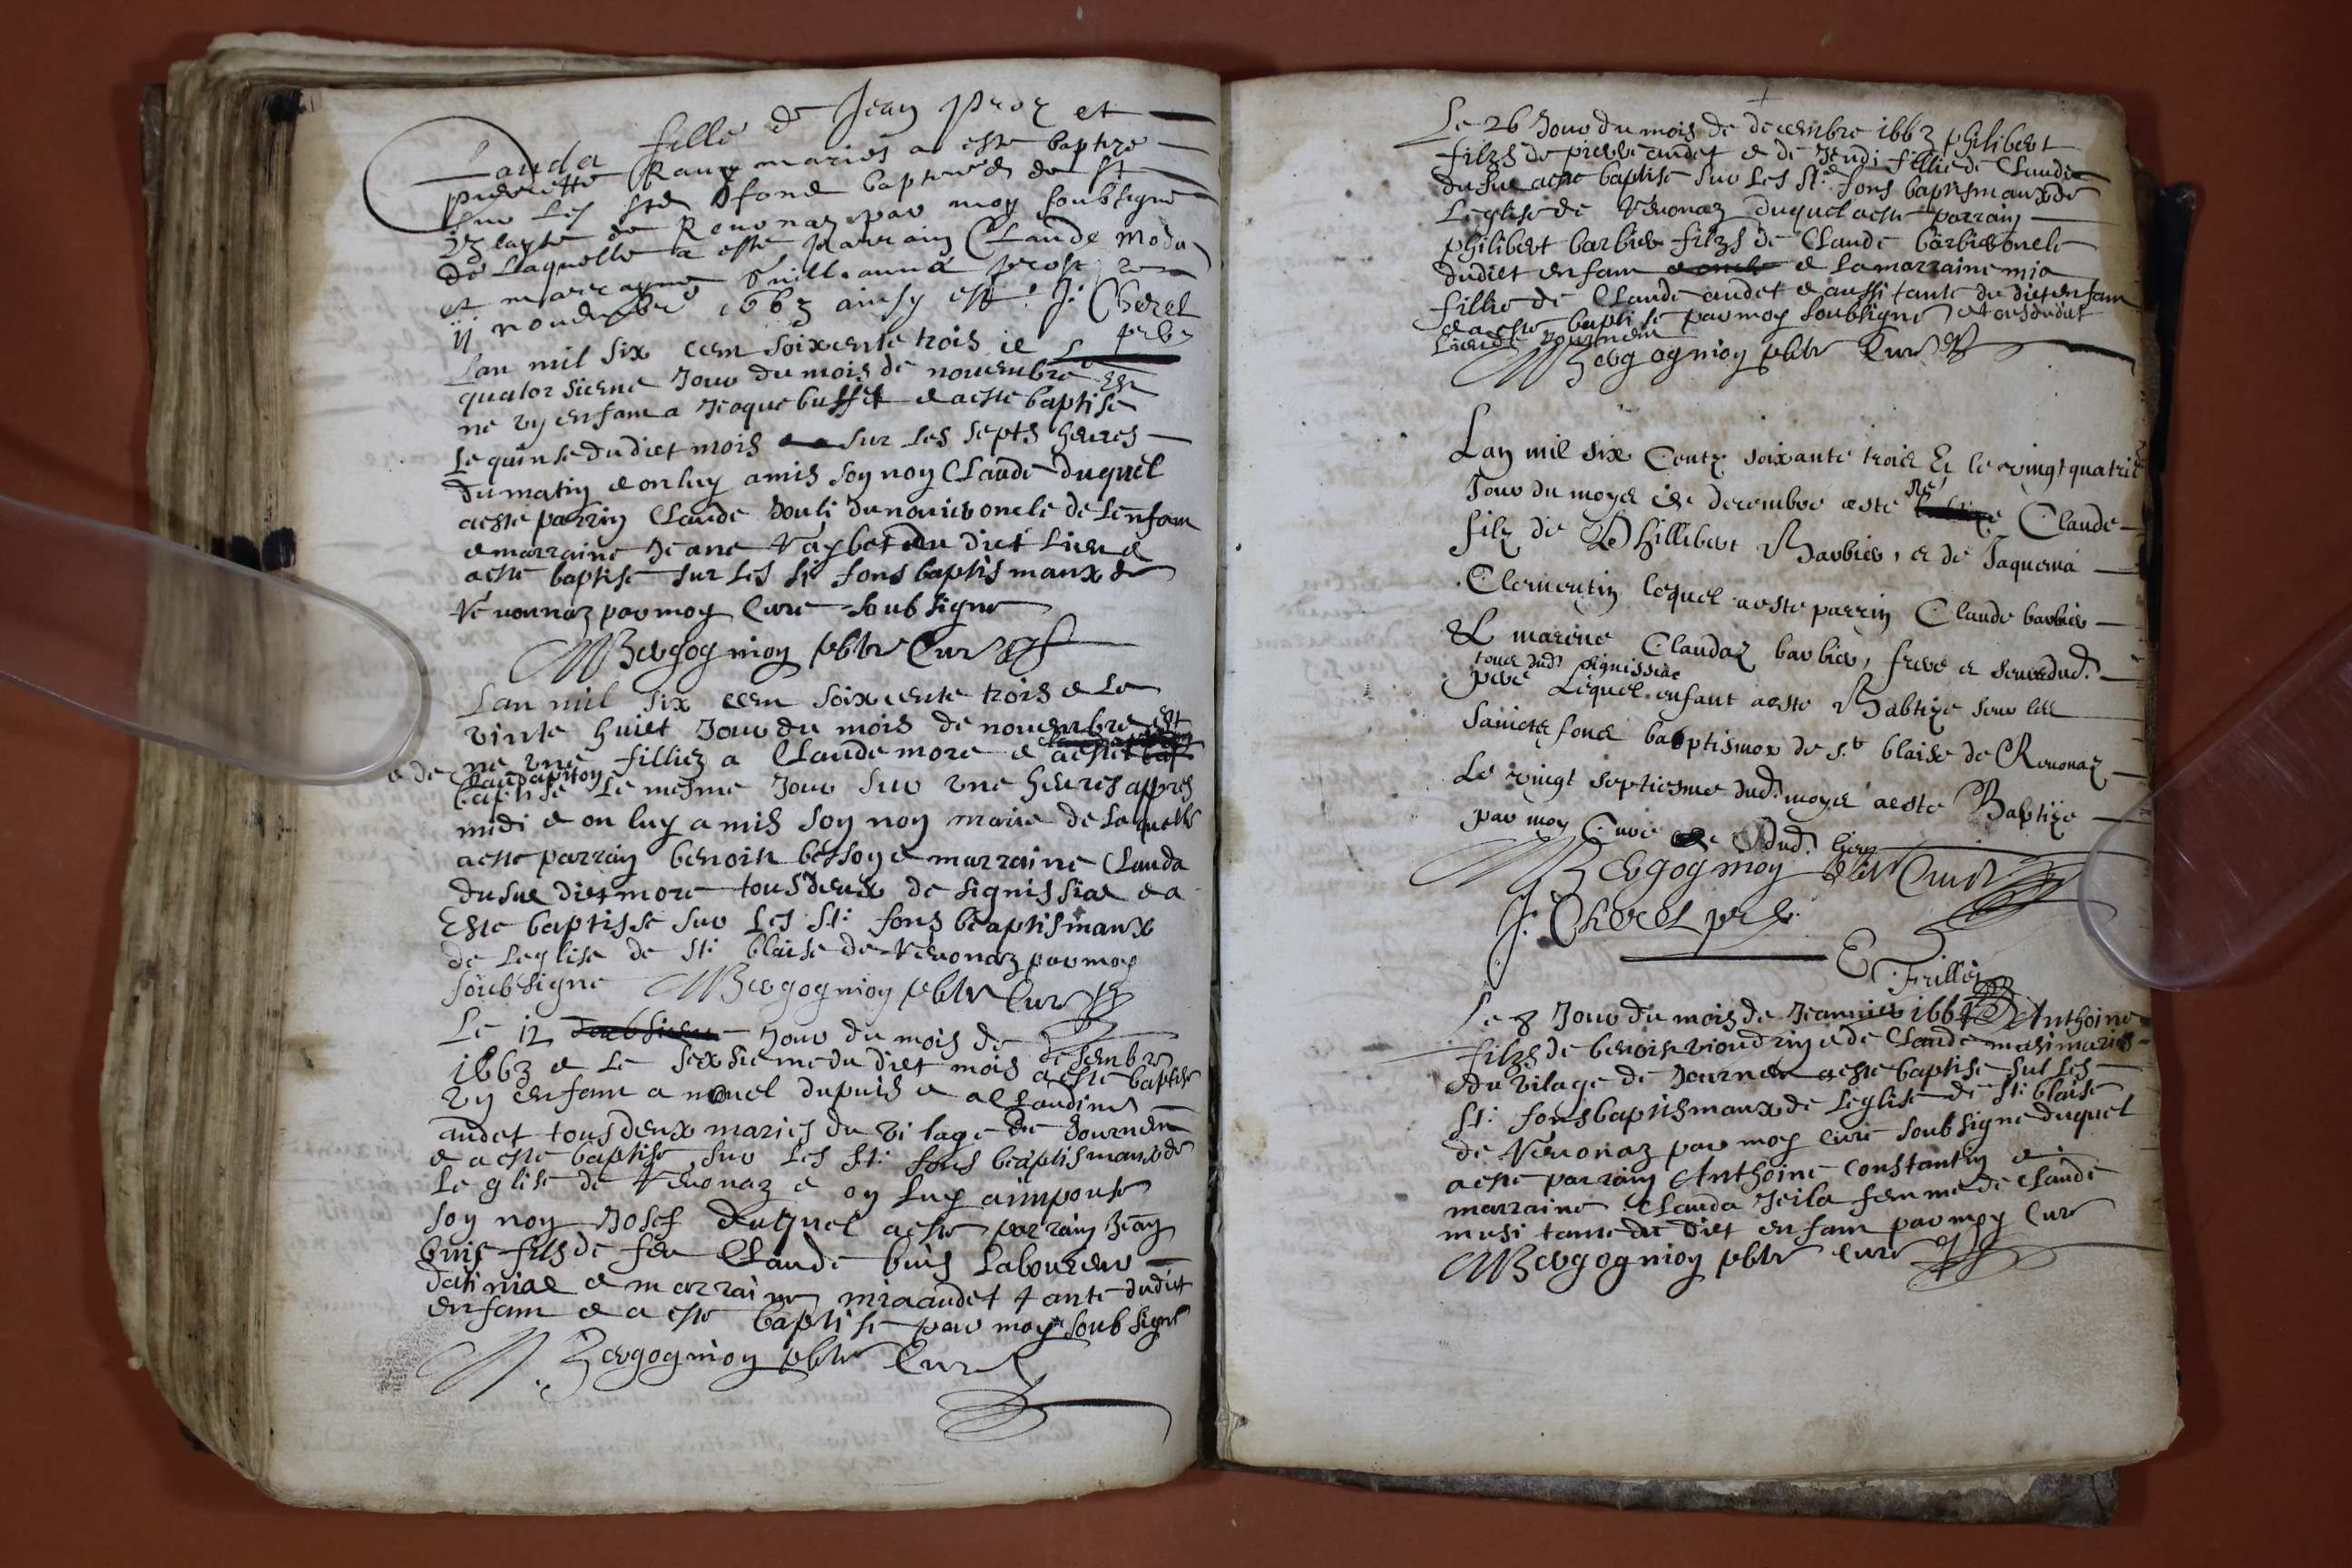 Clauda fille de Jean proz et
pierrette Raux mariés a esté baptizé
sur les sts fond baptismes de St
de Reuonaz par moy soubsigné
de laquelle a esté parrain Claude
et marrayne anna prost
11 nouembre 1663 ainsy est J. Cherel
prbr
Lan mil six cem soixente trois
quatorsieme Jour du mois de nouembre est
ne vn enfam a Jeaque buffet e a este baptisé
Le quinse du dict mois sur les septs heures
du matin e on luy a mis son non Claude duquel
a este parrin Claude Jouli oncle de lenfam
e marraine Jeane du dict lieu e
a este baptisé sur les st fons baptismaux de
Veuonnaz par moy Cure soubsigne
Bergognion pbtr Cure
Lan mil six cem soixcente trois e le
vinte huict Jour du mois de nouembre est
ne vne filliez a Claude more e
e de Clauda
baptise le mesme Jour sur vne heures appres
midi e on luy a mis son non marie de laquelle
a este parrain benoist besson e marraine Clauda
dusue dict more tous deux de signissiae e a
Este baptisse sur les St: fons beaptismaux
de Leglise de St: blaise de Veuonaz par moy
soubsigne Bergognion pbtr Cure
Le 12 Jour du mois de desembre
1663 e le sexsieme du dict mois a este baptise
vn enfam a nouel dupuis e a Claudine
audet tous deux maries du vilage de Journen
e a este baptise sur les St: fons beaptismaux de
Leglise de Veuonaz e on luy a imposé
son non Josef duquel a este parrain Jean
buis fils de feu Claude buis laboureur
datiniae e marraine mia audet tante dudict
enfam e a este baptise par moy soubsigne
Bergognion pbtr Cure
Le 26 Jour du mois de decembre 1663 philibert
filzs de pierre audet e de Jendi fillie de Claude
dusue a este baptisé sur les St: fons baptismaux de
Leglise de Veuonaz duquel a este parrain
philibert barbier filzs de Claude barbier oncle
dudict enfam e la marraine mia
fillie de Claude audet e aussi tante du dict enfam
e a este baptisé par moy soubsigne
Lieu de Journen
Bergognion pbtr Cure
Lan mil six Centz soixante trois Et le vingt quatrie
Jour du moys de decembre a esté né Claude
filz de Phillibert Barbier, et de Jaquema
Clementin lequel a este parrin Claude barbier
Et marine Claudaz barbier, frere et seur dud.
tous dud. signissiae
pere Lequel enfant a este Babtize sur les
saincts fons babptismox de s.t blaise de Reuonaz
Le vingt septiesme dud. moys a este Baptize
par moy Cure dud. lieu
Bergognion pbtr Curé
J. Cherel prbr.
E Frillet
Le 8 Jour du mois de Jeanuier 1664 Anthoine
filzs de benoist viondrin e de Claude masi mariés
du vilage de Journen a este baptise sul les
St: fons baptismaux de Leglise de St: blaise
de Veuonaz par moy cure soubsigne duquel
a este parrain Anthoine Constantin e
marraine Clauda Jeila femme de Claude
masi tante du dict enfam par moy Cure
Bergognion pbtr Cure